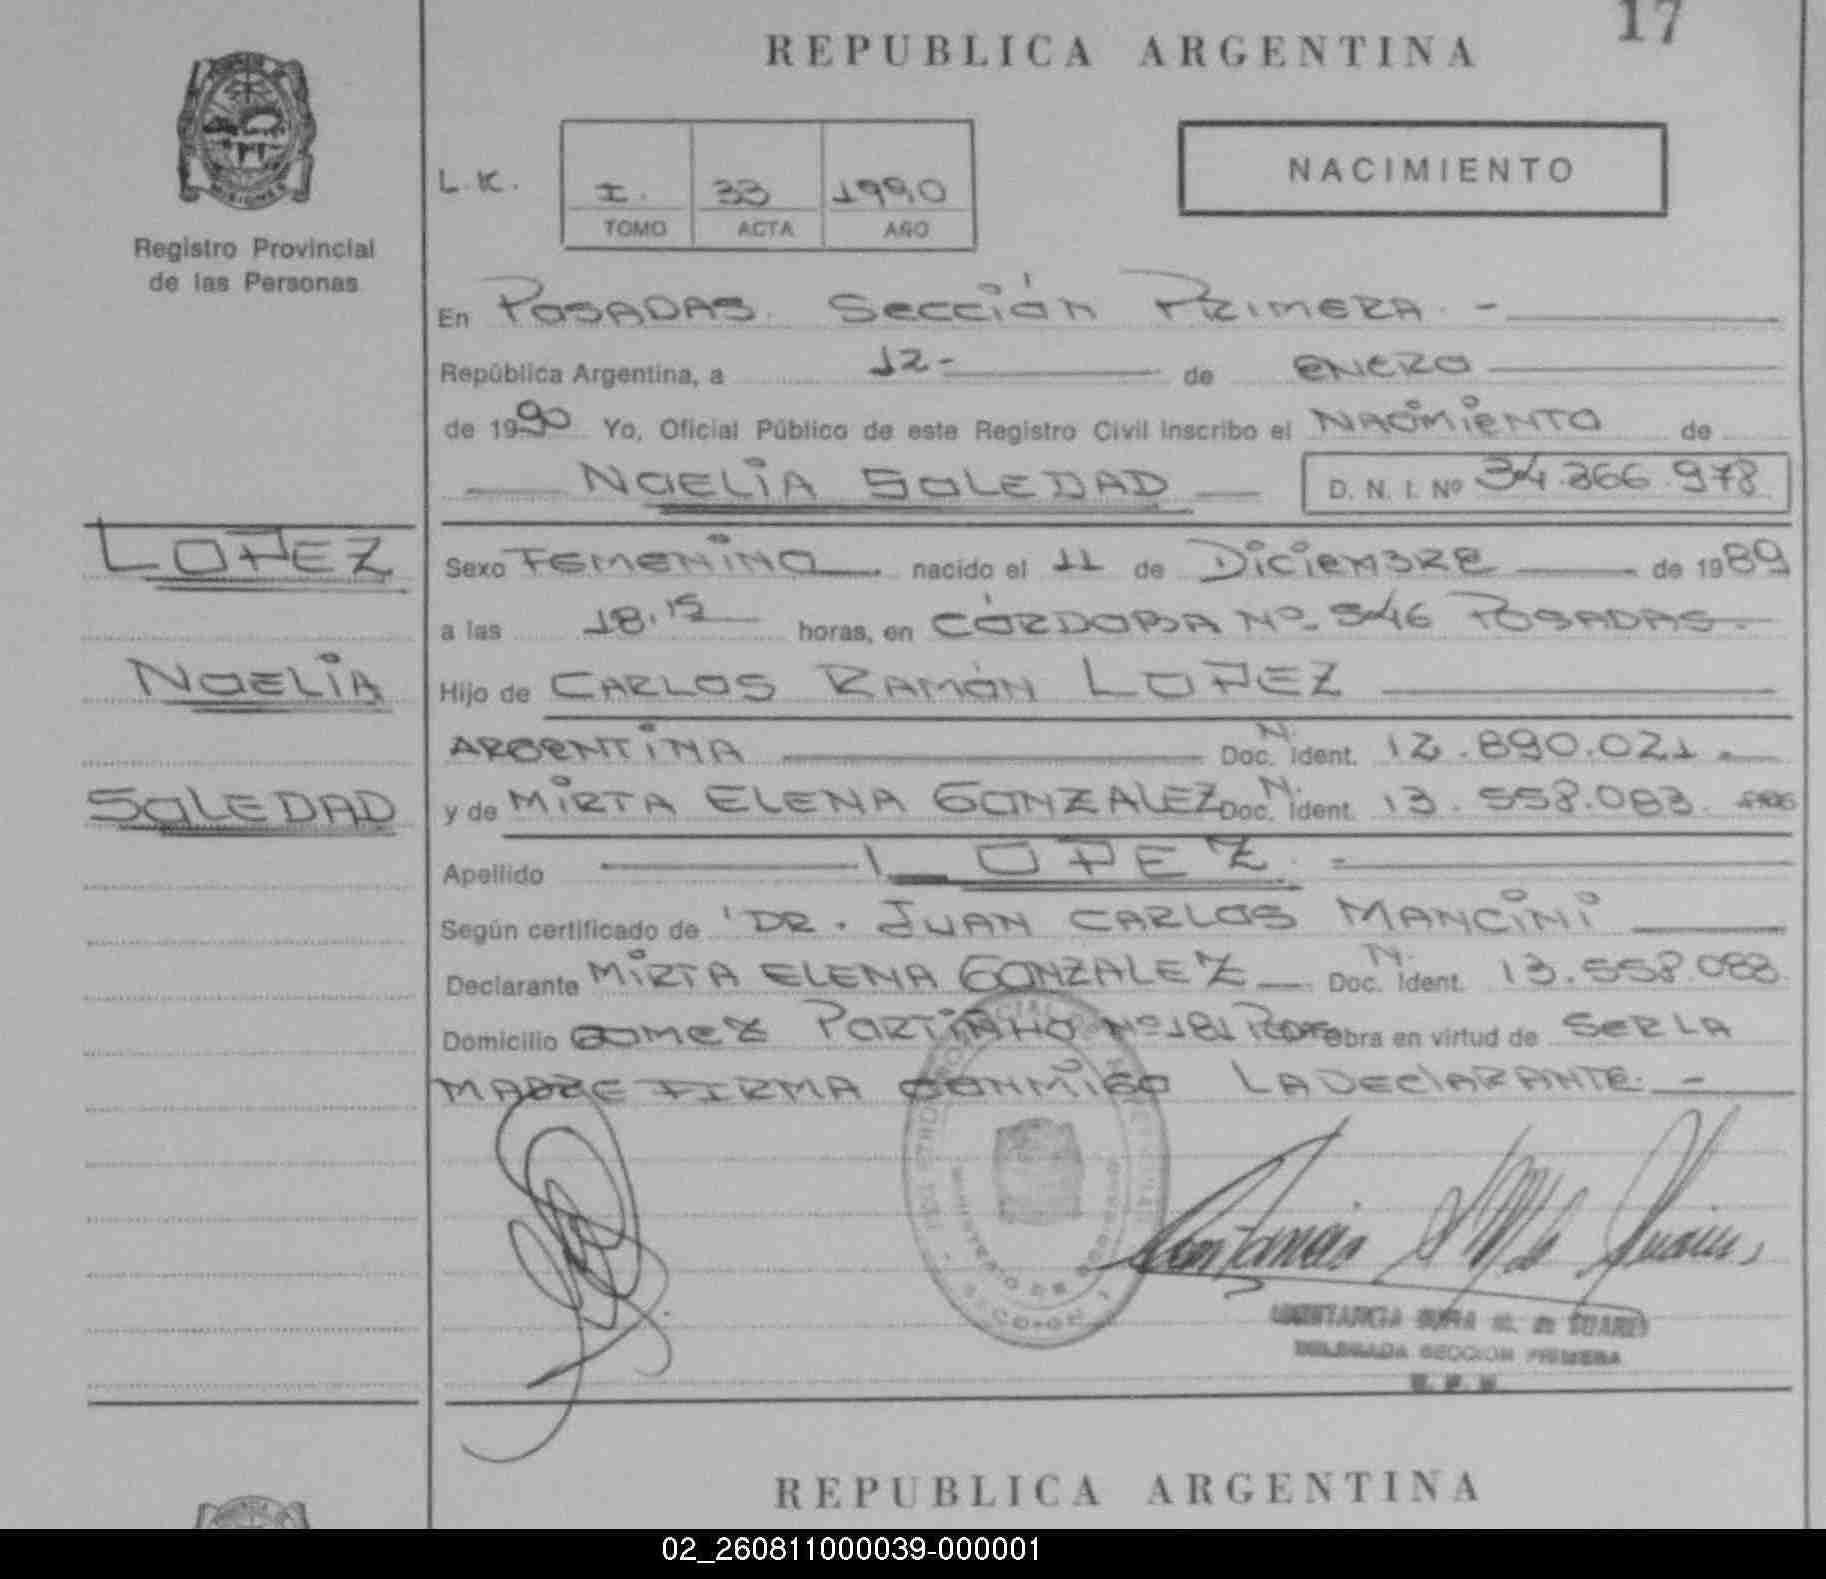 17
REPUBLICA ARGENTINA
NACIMIENTO
L.K.
I. 33 1990
TOMO ACTA AÑO
Registro Provincial
de las Personas
En POSADAS. Sección PRIMERA. -
República Argentina, a 12- de ENERO
de 1990 Yo, Oficial Público de este Registro Civil inscribo el NACIMIENTO de
NOELIA SOLEDAD D. N. I. Nº 34.366.978
LOPEZ
NOELIA
SOLEDAD
Sexo FEMENINO nacido el 11 de DICIEMBRE de 1989
a las 18.15 horas, en CÓRDOBA Nº 546 POSADAS.
Hijo de CARLOS RAMÓN LOPEZ
ARGENTINA Doc. N. Ident. 12.890.021.-
y de MIRTA ELENA GONZALEZ Doc. N. Ident. 13.558.083.
Apellido LOPEZ. -
Según certificado de DR. JUAN CARLOS MANCINI
Declarante MIRTA ELENA GONZALEZ Doc. N. Ident. 13.558.083.
Domicilio GOMEZ PORTINHO Nº 181 Pos. obra en virtud de SER LA
MADRE FIRMA CONMIGO LA DECLARANTE. -
DELEGADA SECCION PRIMERA
REPUBLICA ARGENTINA
02_260811000039-000001